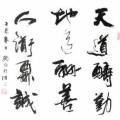 天道酬勤
地道酬善
人道酬誠